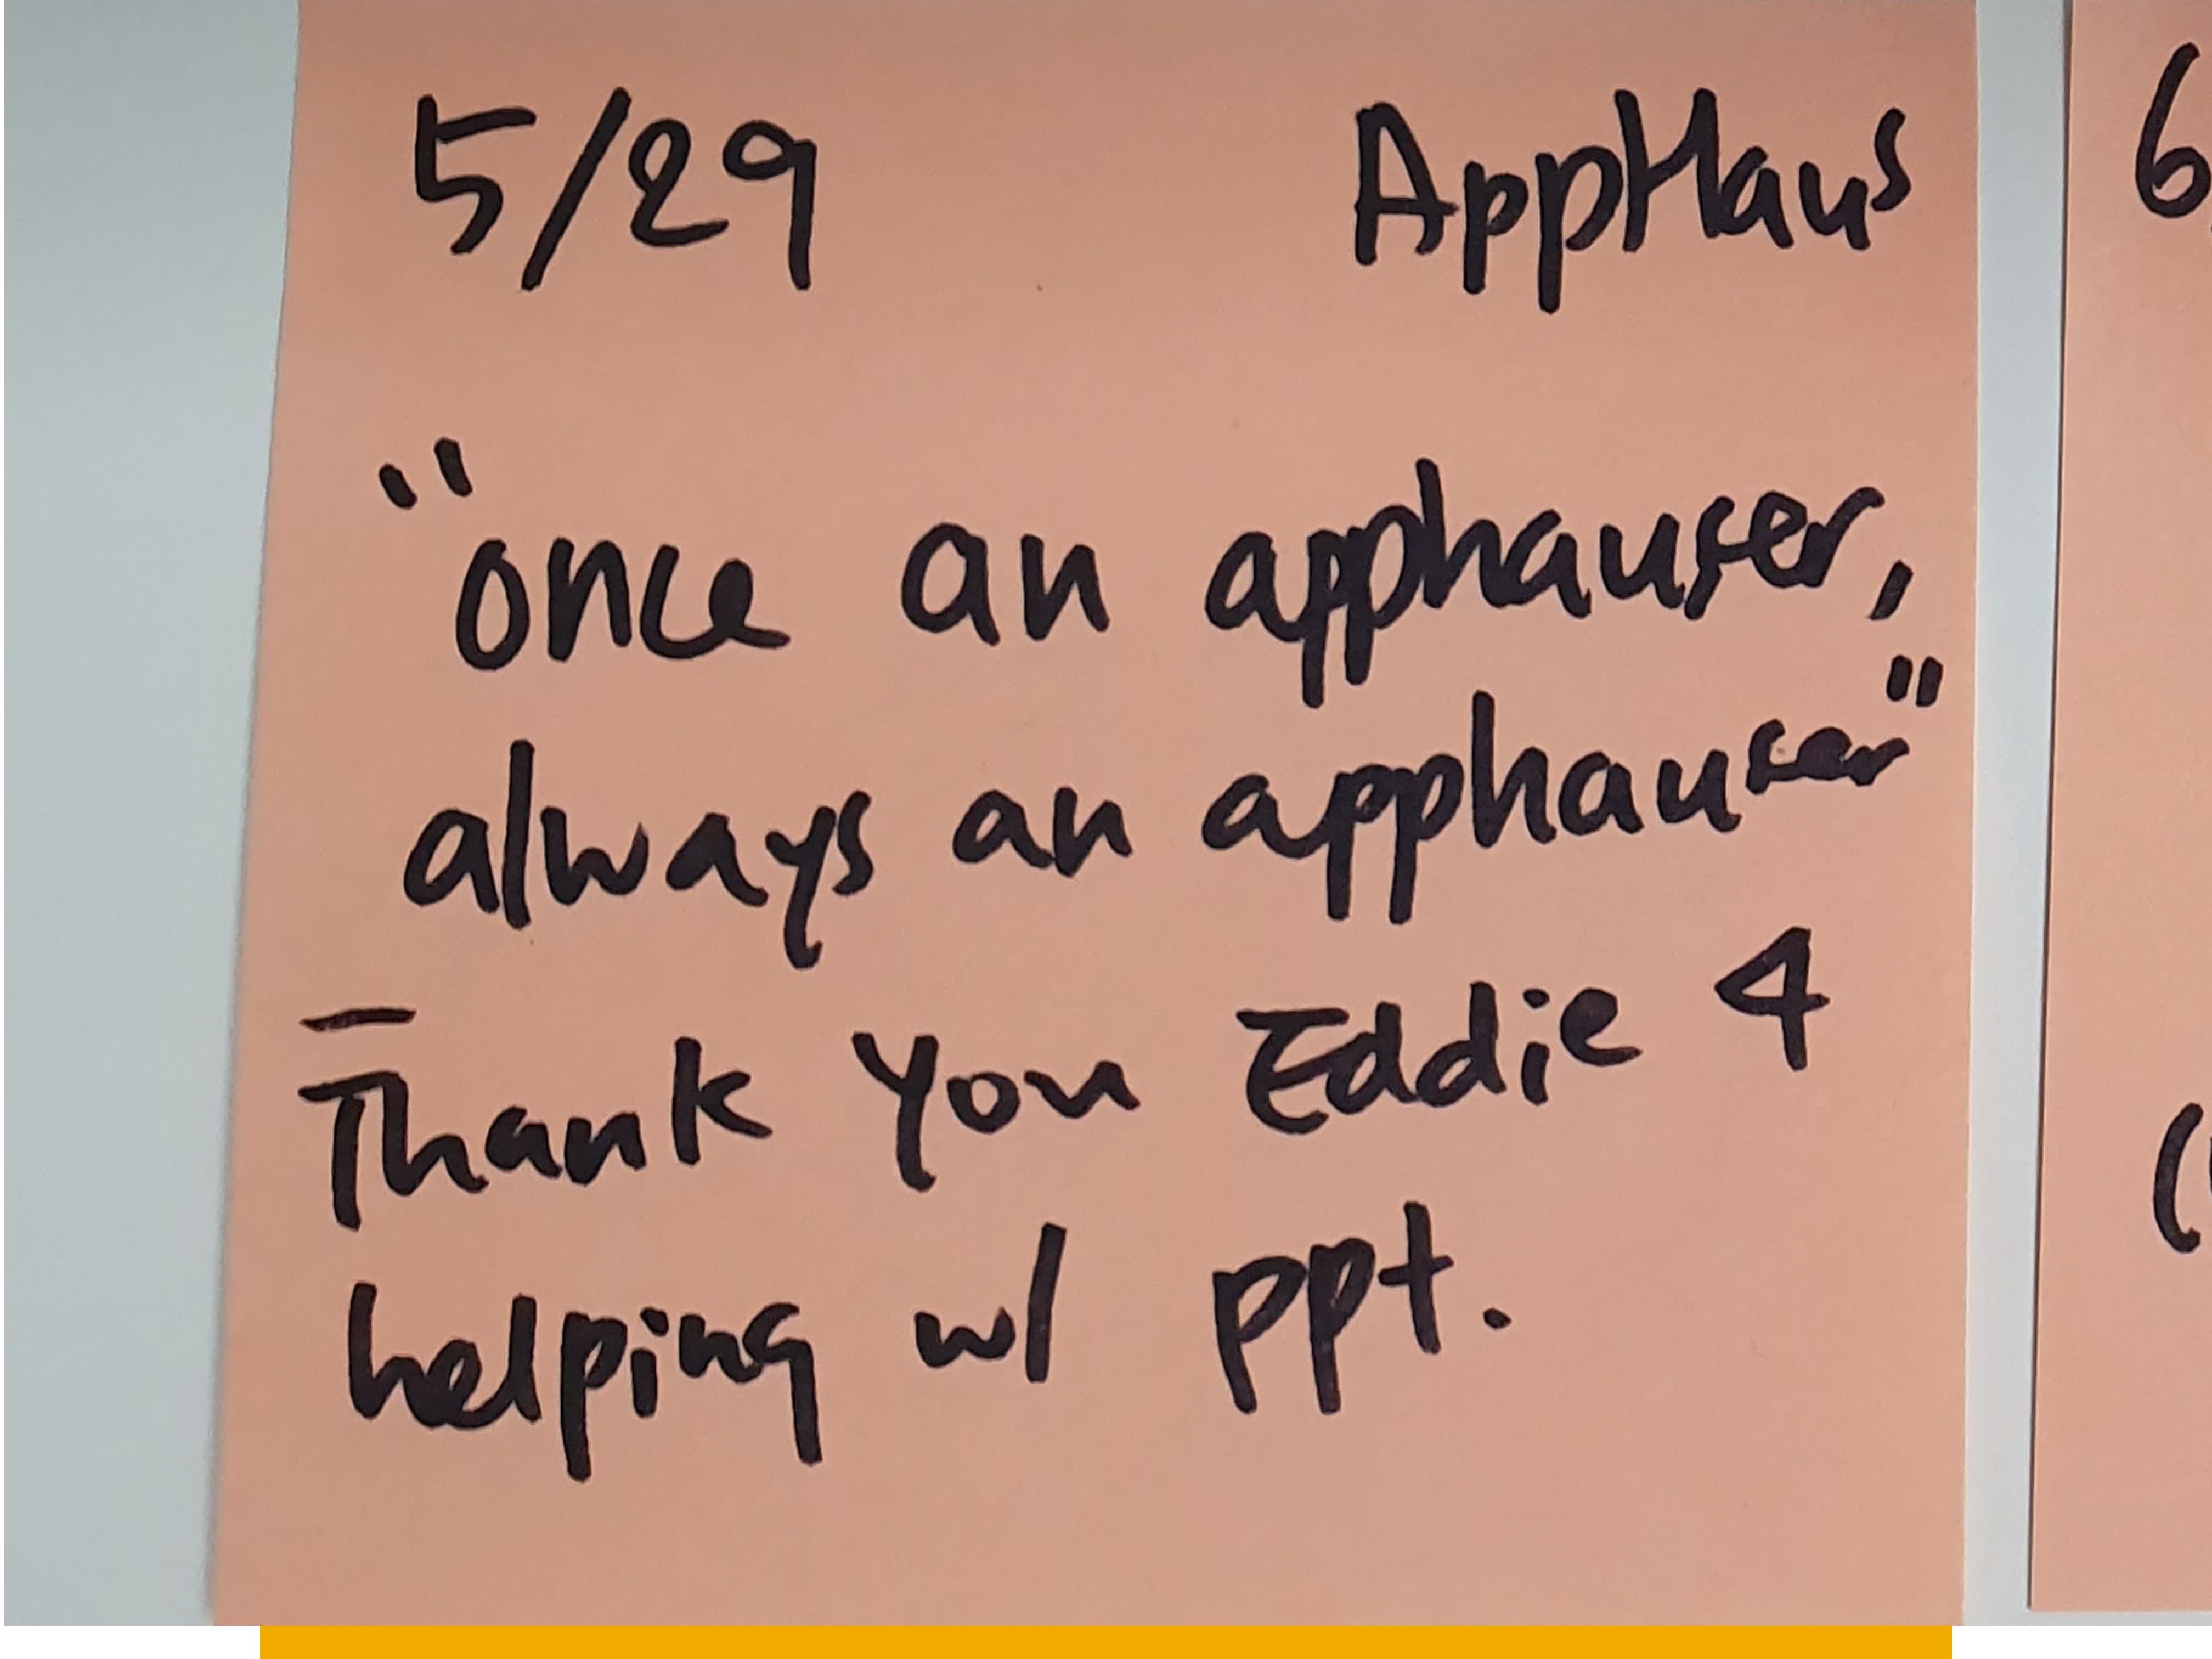 5/29 AppHaus
"once an apphauser,
always an apphauser"
- Thank You Eddie 4
helping w/ ppt.
6
(